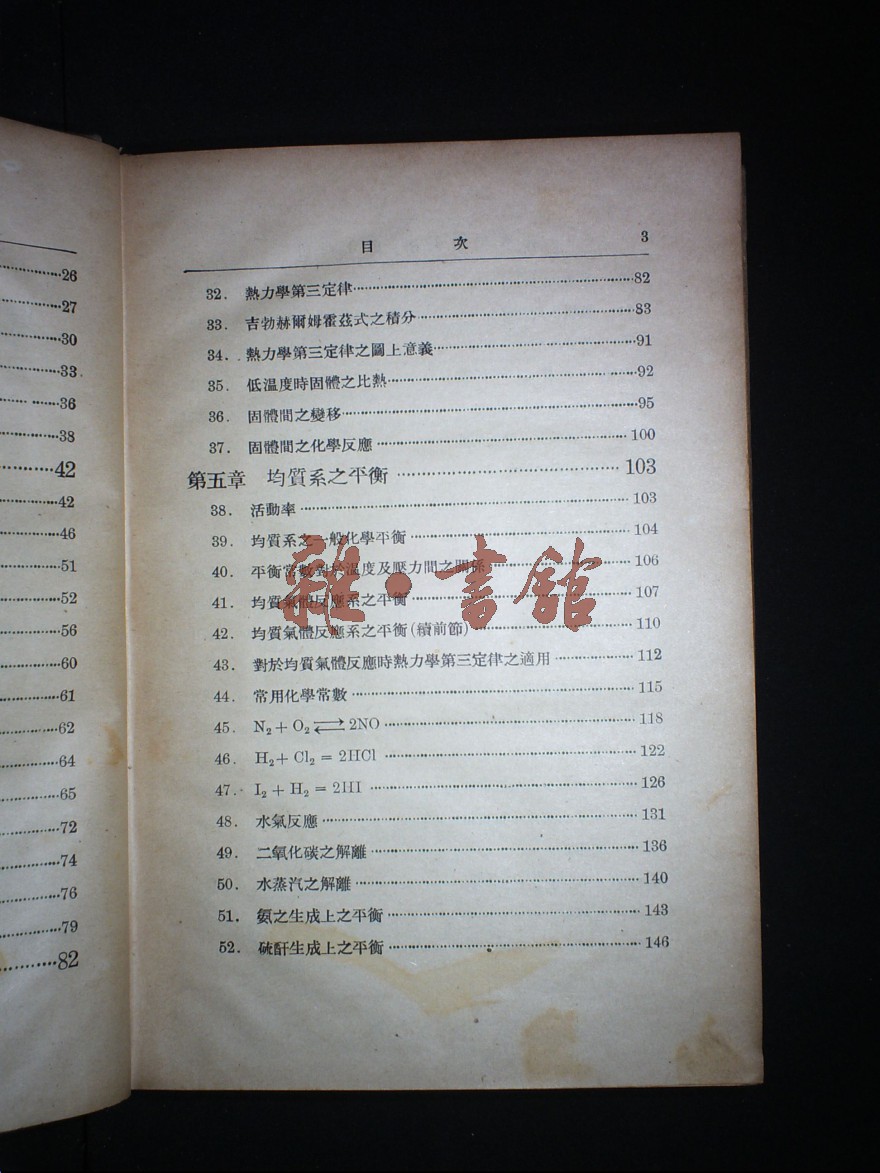 26
27
30
33
36
38
42
42
46
51
52
56
60
61
62
64
65
72
74
76
79
82
目 次 3
32. 熱力學第三定律 82
33. 吉勃赫爾姆霍茲式之積分 83
34. 熱力學第三定律之圖上意義 91
35. 低溫度時固體之比熱 92
36. 固體間之變移 95
37. 固體間之化學反應 100
第五章 均質系之平衡 103
38. 活動率 103
39. 均質系之一般化學平衡 104
40. 平衡常數對於溫度及壓力間之關係 106
41. 均質氣體反應系之平衡 107
42. 均質氣體反應系之平衡(續前節) 110
43. 對於均質氣體反應時熱力學第三定律之適用 112
44. 常用化學常數 115
45. N₂ + O₂ ⇄ 2NO 118
46. H₂ + Cl₂ = 2HCl 122
47. I₂ + H₂ = 2HI 126
48. 水氣反應 131
49. 二氧化碳之解離 136
50. 水蒸汽之解離 140
51. 氨之生成上之平衡 143
52. 硫酐生成上之平衡 146
雜·書館